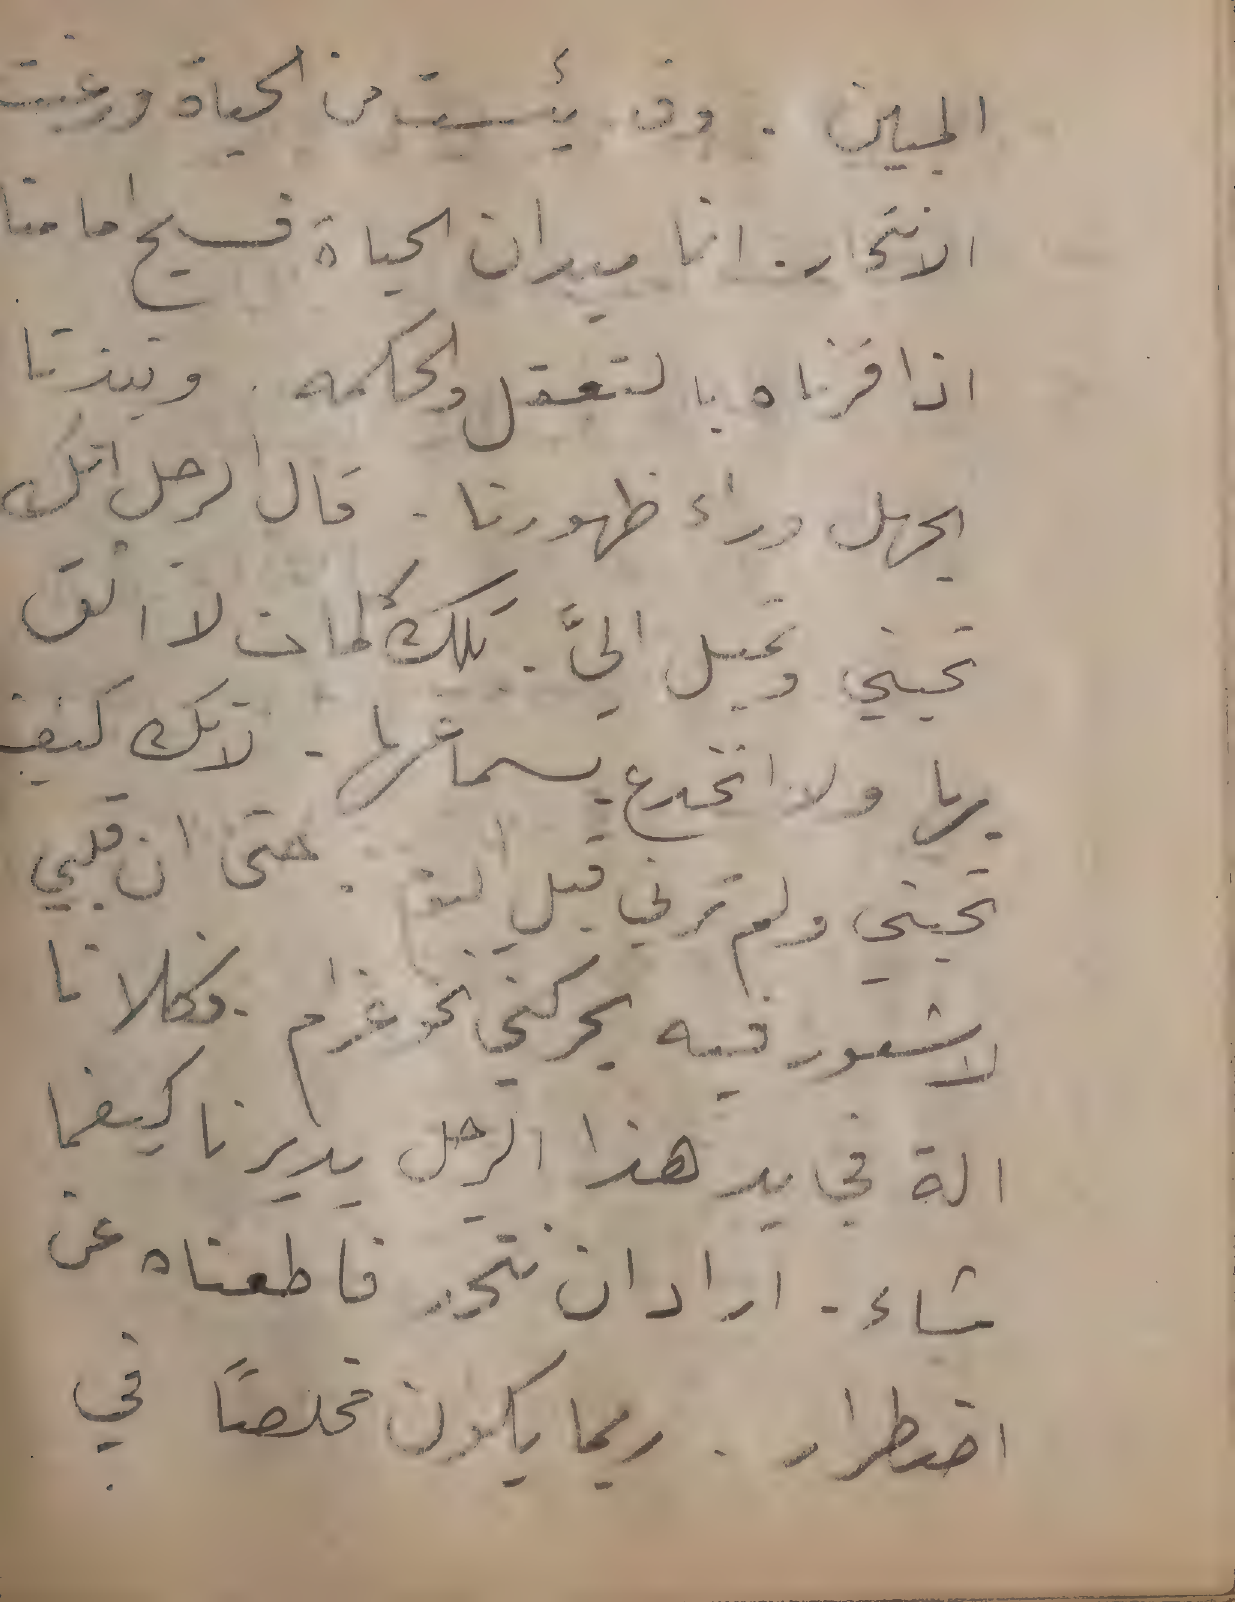 الجبين . وقد يئست من الحياة ورغبت
الانتحار . انما ميدان الحياة فسيح امامنا
اذا قرناه بالتعقل والحكمه . ونبذنا
الجهل وراء ظهورنا - قال الرجل انك
تحبني وتميل اليَّ . تلك كلمات لا اثق
بها ولا انخدع بسماعها - لانك كيف
تحبني ولم ترني قبل اليوم . حتى ان قلبي
لا شعور فيه يحركني نحو غرام - فكلانا
الة في يد هذا الرجل يديرنا كيفما
شاء - اراد ان نتحد فاطعناه عن
اضطرار . ربما يكون مخلصًا في